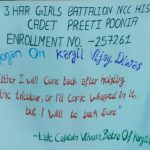 3 HAR GIRLS BATTALION NCC HIS
CADET PREETI POONIA
ENROLLMENT NO. -257261
ogan On Kargil Vijay Diwas
ither I will come back after
the tricolour, or I'll come wrapped in it,
but I will be back sure"
-Late Captain Vikram Batra Of Kargil